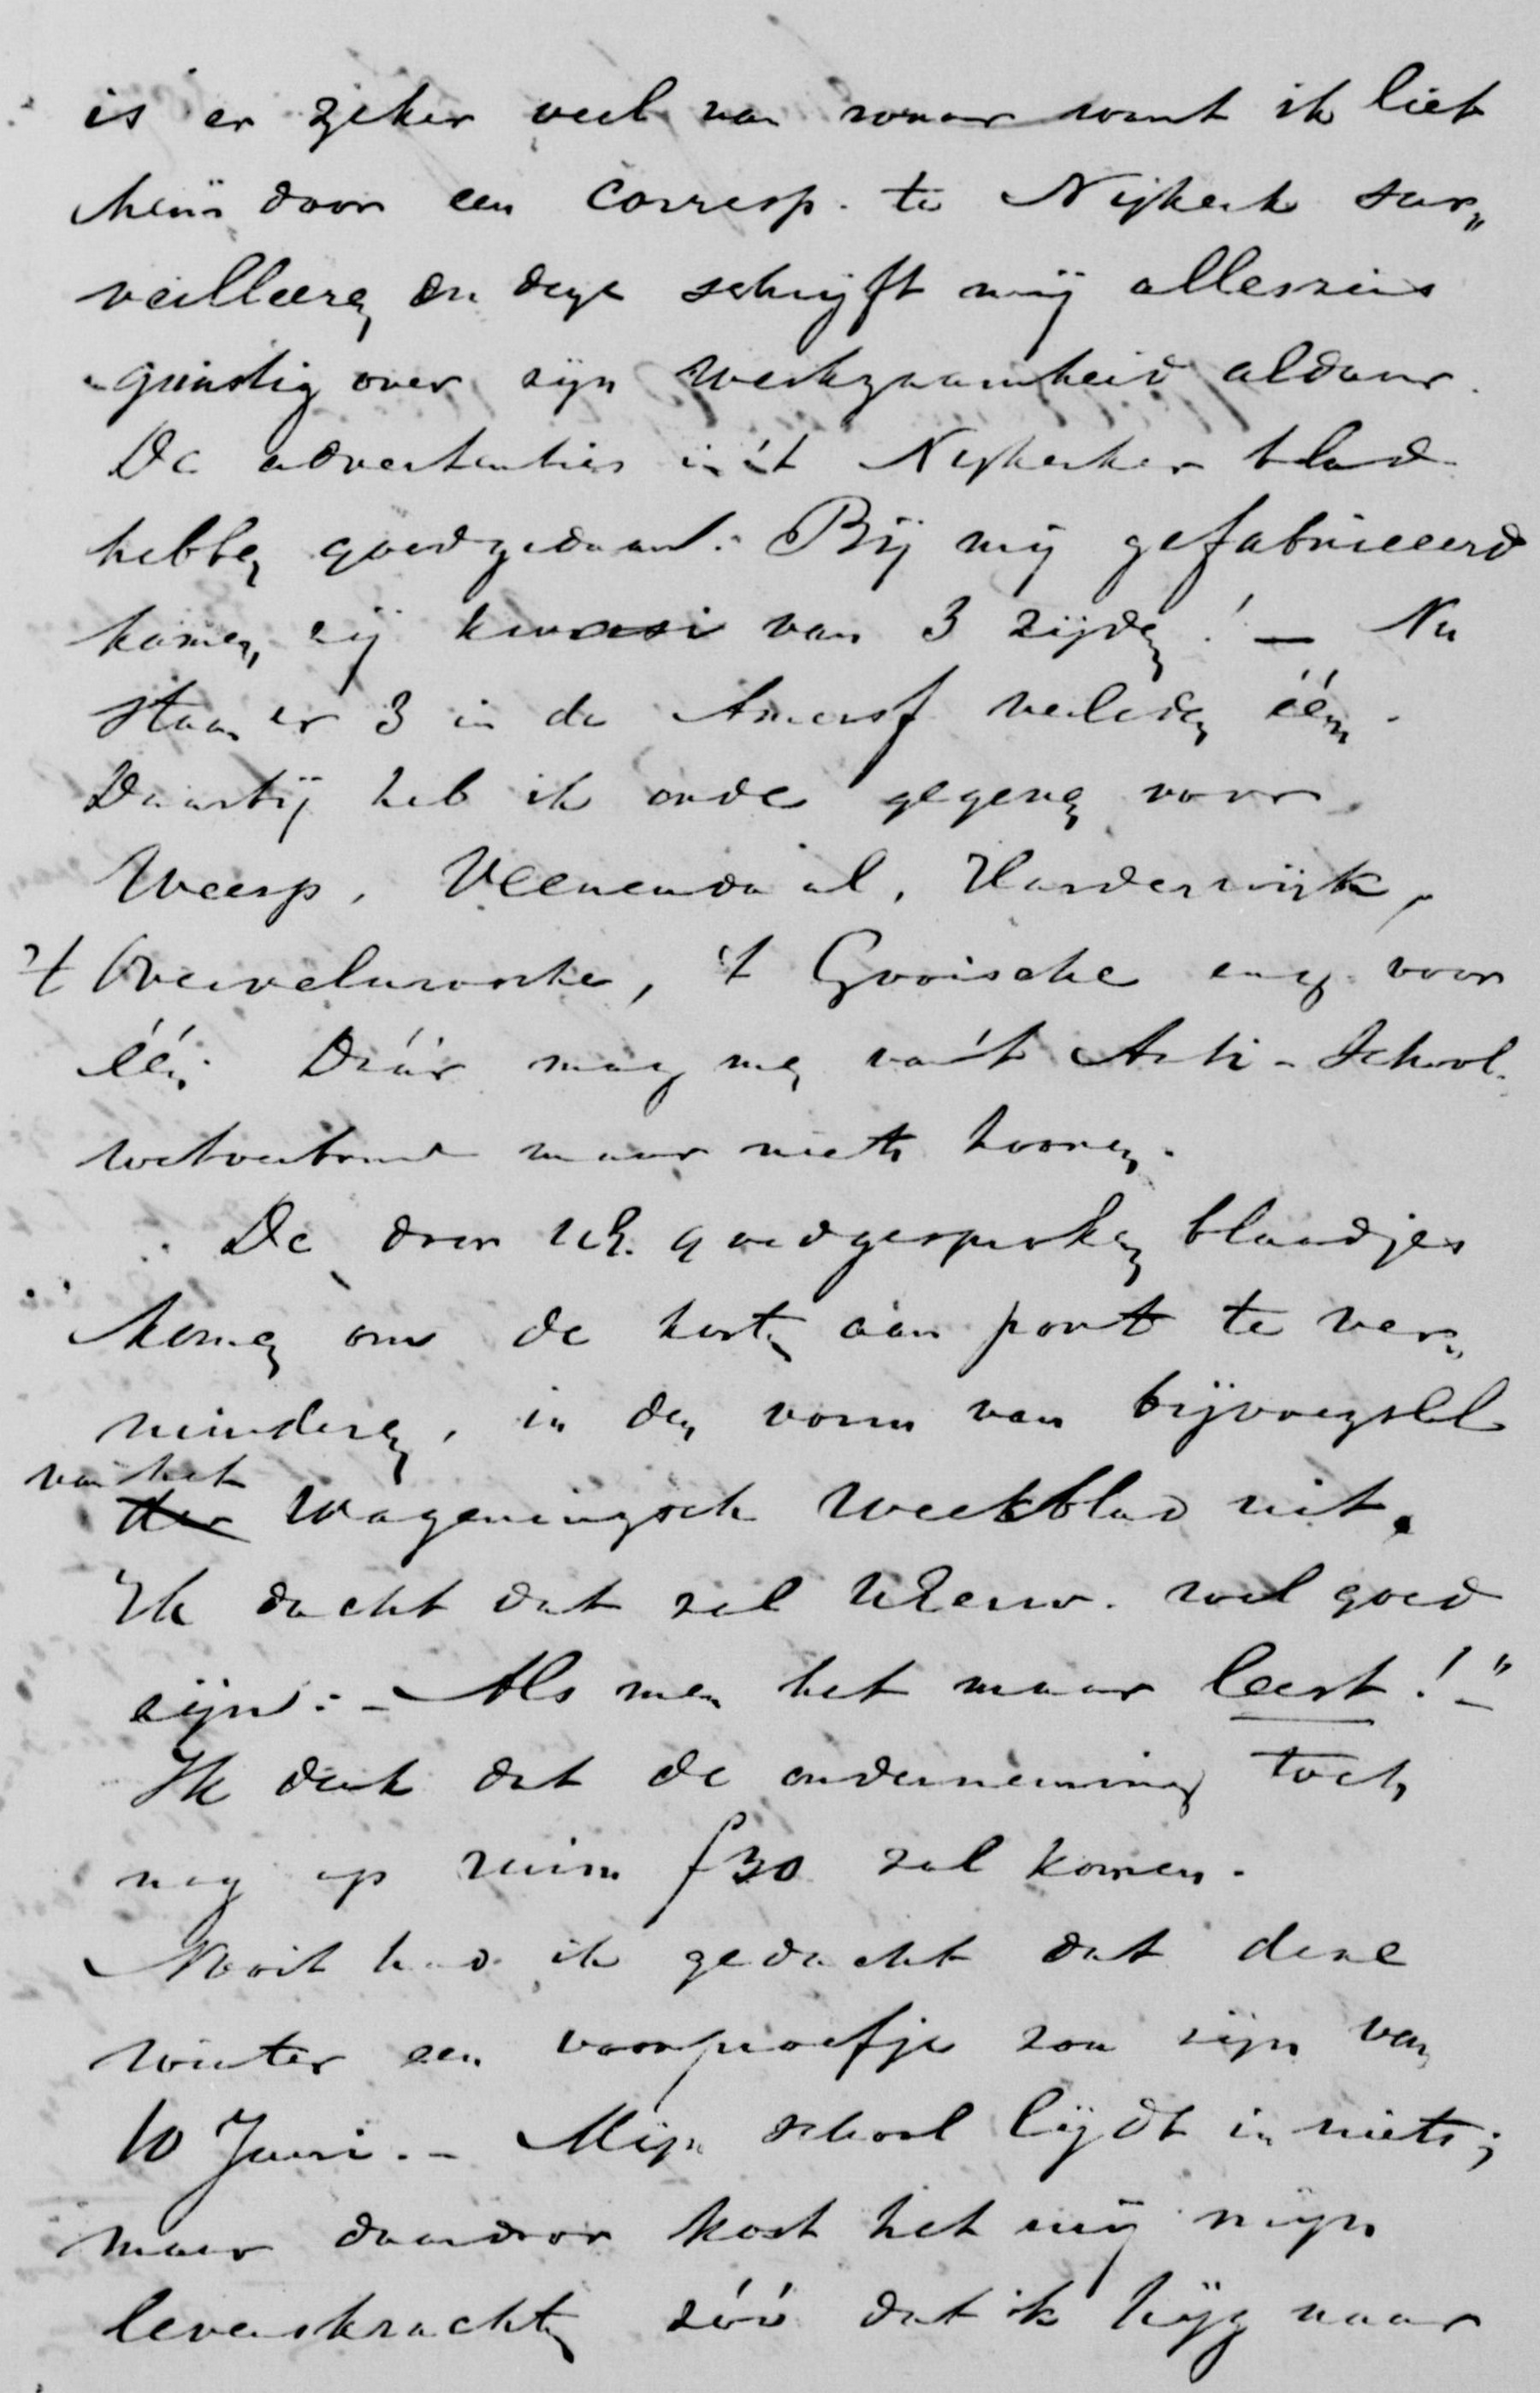 is er zeker veel van waar want ik liet
hem door een corresp. te Nijkerk sur„
veilleeren en deze schrijft mij alleszins
gunstig over zijn werkzaamheid aldaar.
De advertenties in 't Nijkerker blad
hebben goedgedaan. Bij mij gefabriceerd
komen zij kwasi van 3 zijden! — Nu
staan er 3 in de Amersf verleden één.
Daarbij heb ik order gegeven voor
Weesp, Veenendaal, Harderwijk,
't Overveluwsche, 't Gooische enz. voor
één. Dáár mag men van 't Anti-School
wetverbond maar niets hooren.
De door UE. goedgesproken blaadjes
komen om de kosten aan port te ver„
minderen, in den vorm van bijvoegsel
van het
der Wageningsch Weekblad uit.
Ik dacht dat zal UEerw. wel goed
zijn: - Als men het maar leest! -"
Ik denk dat de onderneming toch
nog op ruim f 30 zal komen.
Nooit had ik gedacht dat deze
winter een voorproefje zou zijn van
10 Juni. - Mijn school lijdt in niets;
maar daardoor kost het mij mijn
levenskrachten zóó dat ik hijg naar